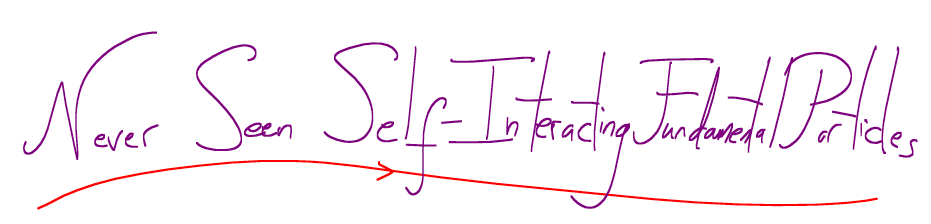 Never Seen Self-Interacting Fundamental Particles